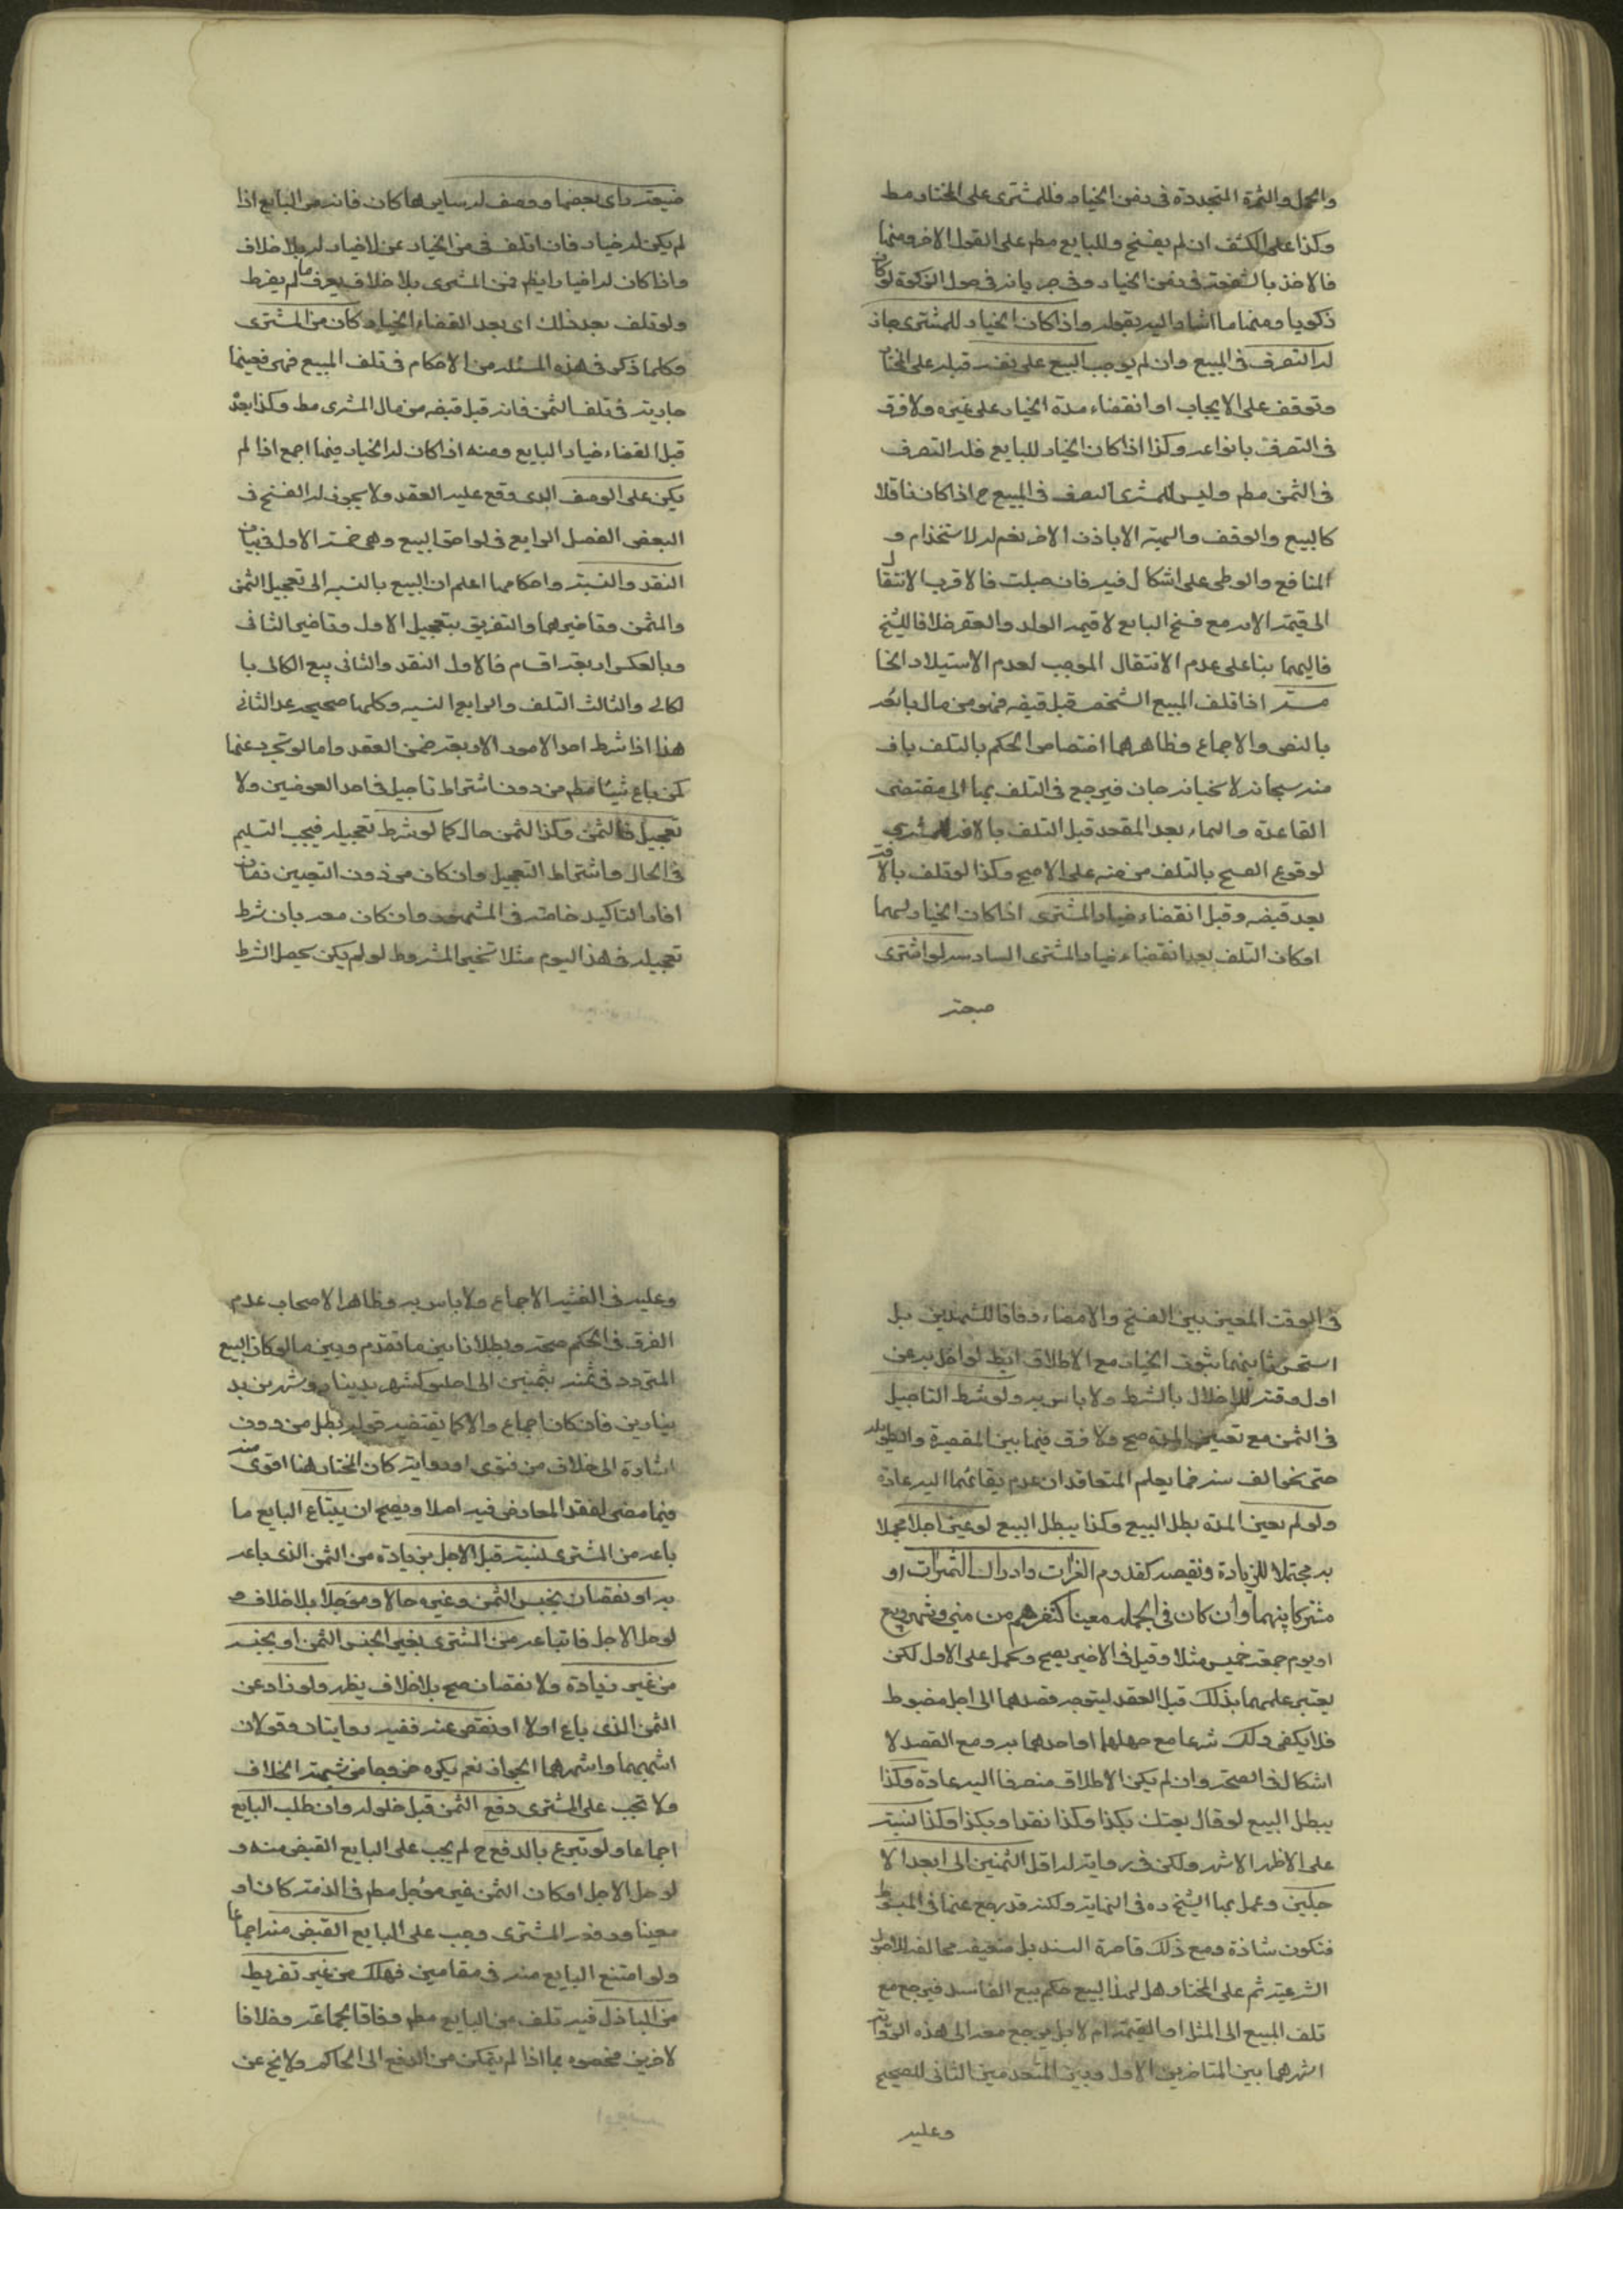 والحمل والثمرة المتجددة في زمن الخيار فللمشتري على المختار مط
وكذا على الكشف ان لم يفسخ وللبايع مطم على القول الاخر ومنها
فالاخذ بالشفعة في زمن الخيار وفي جريانه في حول الزكوة لو كان
زكويا ومنها ما اشار اليه بقوله واذا كان الخيار للمشتري جاز
له التصرف في المبيع وان لم يوجب البيع على نفسه قبله على المختار
وتوقف على الايجاب او انقضاء مدة الخيار على غيره ولا فرق
في التصرف بانواعه وكذا اذا كان الخيار للبايع فله التصرف
في الثمن مطم وليس للمشتري التصرف في المبيع ح اذا كان ناقلا
كالبيع والوقف والهبة الا باذن الاخر نعم له الاستخدام و
المنافع والوطي على اشكال فيه فان حبلت فالاقرب الانتقال
الى قيمة الام مع فسخ البايع لا قيمة الولد والعقر خلافا للشيخ
فاليهما بناء على عدم الانتقال الموجب لعدم الاستيلاد الخا
مسة اذا تلف المبيع الشخصي قبل قبضه فهو من مال بايعه
بالنص والاجماع وظاهرهما اختصاص الحكم بالتلف باف
منه سبحانه لا بخيانه جان فيرجع في التلف بها الى مقتضى
القاعدة والنماء بعد العقد قبل التلف بالافة للمشتري
لوقوع الفسخ بالتلف من حينه على الاصح وكذا لو تلف بالافة
بعد قبضه وقبل انقضاء خيار المشتري اذا كان الخيار لهما
او كان التلف بعد انقضاء خيار المشتري السادسه لو اشترى
ضيعة
ضيعة راى بعضها ووصف له سايرها كان فانه من البايع اذا
لم يكن له خيار فان اتلف في زمن الخيار عن لا خيار له بلا خلاف
واذا كان له الخيار ايظم فمن المشتري بلا خلاف يعرف ما لم يفرط
ولو تلف بعد ذلك اى بعد انقضاء الخيار كان من المشتري
وكلما ذكر في هذه المسئلة من الاحكام في تلف المبيع فهي فعينها
جارية في تلف الثمن فانه قبل قبضه من مال المشتري مط وكذا بعده
قبل انقضاء خيار البايع ومنه اذا كان له الخيار فيها اجمع اذا لم
يكن على الوصف الذي وقع عليه العقد ولا يجوز له الفسخ في
البعض الفصل الرابع في لواحق البيع وهي خمسة الاول في بيان
النقد والنسية واحكامهما اعلم ان البيع بالنسبه الى تعجيل الثمن
والمثمن وتاخيرهما والتفريق بتعجيل الاول وتاخير الثاني
وبالعكس اربعة اقسام فالاول النقد والثاني بيع الكالى با
لكالى والثالث السلف والرابع النسيه وكلها صحيحة عدا الثاني
هذا اذا شرط احد الامور الاربعة ضمن العقد واما لو تجرد عنها
كمن باع شيئا مطم من دون اشتراط تاجيل في احد العوضين ولا
تعجيل فالثمن وكذا المثمن حال كما لو شرط تعجيله فيجب التسليم
في الحال واشتراط التعجيل وان كان من دون التعيين زمان
افاد التاكيد خاصة في المشهور وان كان معه بان شرط
تعجيله في هذا اليوم مثلا تخير المشروط لو لم يكن يحصل الشرط
في الوقت المعين بين الفسخ والامضاء وفاقا للشهيدين بل
استحسن ثانيهما ثبوت الخيار مع الاطلاق ايظ لو اخل به عن
اول وقته للاخلال بالشرط ولا باس به ولو شرط التاجيل
في الثمن مع تعيين المدة صح ولا فرق فيها بين القصيرة والطويله
حتى نحو الف سنة مما يعلم المتعاقدان عدم بقائهما اليه عادة
ولو لم يعين المدة بطل البيع وكذا يبطل البيع لو عين اجلا مجملا
به محتملا للزيادة ونقيصه كقدوم الغزات وادراك الثمرات او
مشتركا بينهما وان كان في الجمله معينا كنفرهم من منى وشهر ربيع
او يوم جمعة خميس مثلا وقيل في الاخير يصح ويحمل على الاول لكن
يعتبر علمهما بذلك قبل العقد ليتوجه قصدهما الى اجل مضبوط
فلا يكفى ذلك شرعا مع جهلهما او احدهما به ومع القصد لا
اشكال في الصحة وان لم يكن الاطلاق منصرفا اليه عادة وكذا
يبطل البيع لو قال بعتك بكذا وكذا نقدا وبكذا وكذا نسية
على الاظهر الاشهر ولكن في رواية له اقل الثمنين الى ابعد الا
جلين وعمل بها الشيخ ره في النهاية ولكنه قد رجع عنها في المبسوط
فتكون شاذة ومع ذلك قاصرة السند بل ضعيفة مخالفة للاصول
الشرعية ثم على المختار هل لهذا البيع حكم بيع الفاسد فيرجع مع
تلف المبيع الى المثل او القيمة ام لا بل يرجع معه الى هذه الرواية
اشهرهما بين المتاخرين الاول وبين المتقدمين الثاني للصحيح
وعليه
وعليه في الغنية الاجماع ولا باس به وظاهر الاصحاب عدم
الفرق في الحكم صحة وبطلانا بين ما تقدم وبين ما لو كان البيع
المتردد في ثمنه بثمنين الى اجلين كشهر بدينار وشهرين بد
ينارين فان كان اجماع والا كما يقتضيه قوله بطل من دون
اشارة الى خلاف من فتوى او رواية كان المختار هنا اقوى منه
فيما مضى لفقد المعارض فيه اصلا ويصح ان يبتاع البايع ما
باعه من المشتري لنسية قبل الاجل بزيادة من الثمن الذي باعه
به او نقصان بجنس الثمن وغيره حالا ومؤجلا بلا خلاف و
لو حل الاجل فابتاعه من المشتري بغير الجنس الثمن او بجنسه
من غير زيادة ولا نقصان صح بلا خلاف يظهر ولو زاد عن
الثمن الذي باع اولا او نقص عنه ففيه روايتان وقولان
اشبههما واشهرهما الجواز نعم يكره خروجا من شبهة الخلاف
ولا تجب على المشتري دفع الثمن قبل حلوله وان طلب البايع
اجماعا ولو تبرع بالدفع ح لم يجب على البايع القبض منه و
لو حل الاجل او كان الثمن غير مؤجل مطم في الذمة كان او
معينا ودفعه المشتري وجب على البايع القبض منه اجماعا
ولو امتنع البايع منه في مقامين فهلك من غير تفريط
من الباذل فيه تلف من البايع مطم وفاقا لجماعة وخلافا
لاخرين فخصوه بما اذا لم يتمكن من الدفع الى الحاكم ولا يخ عن